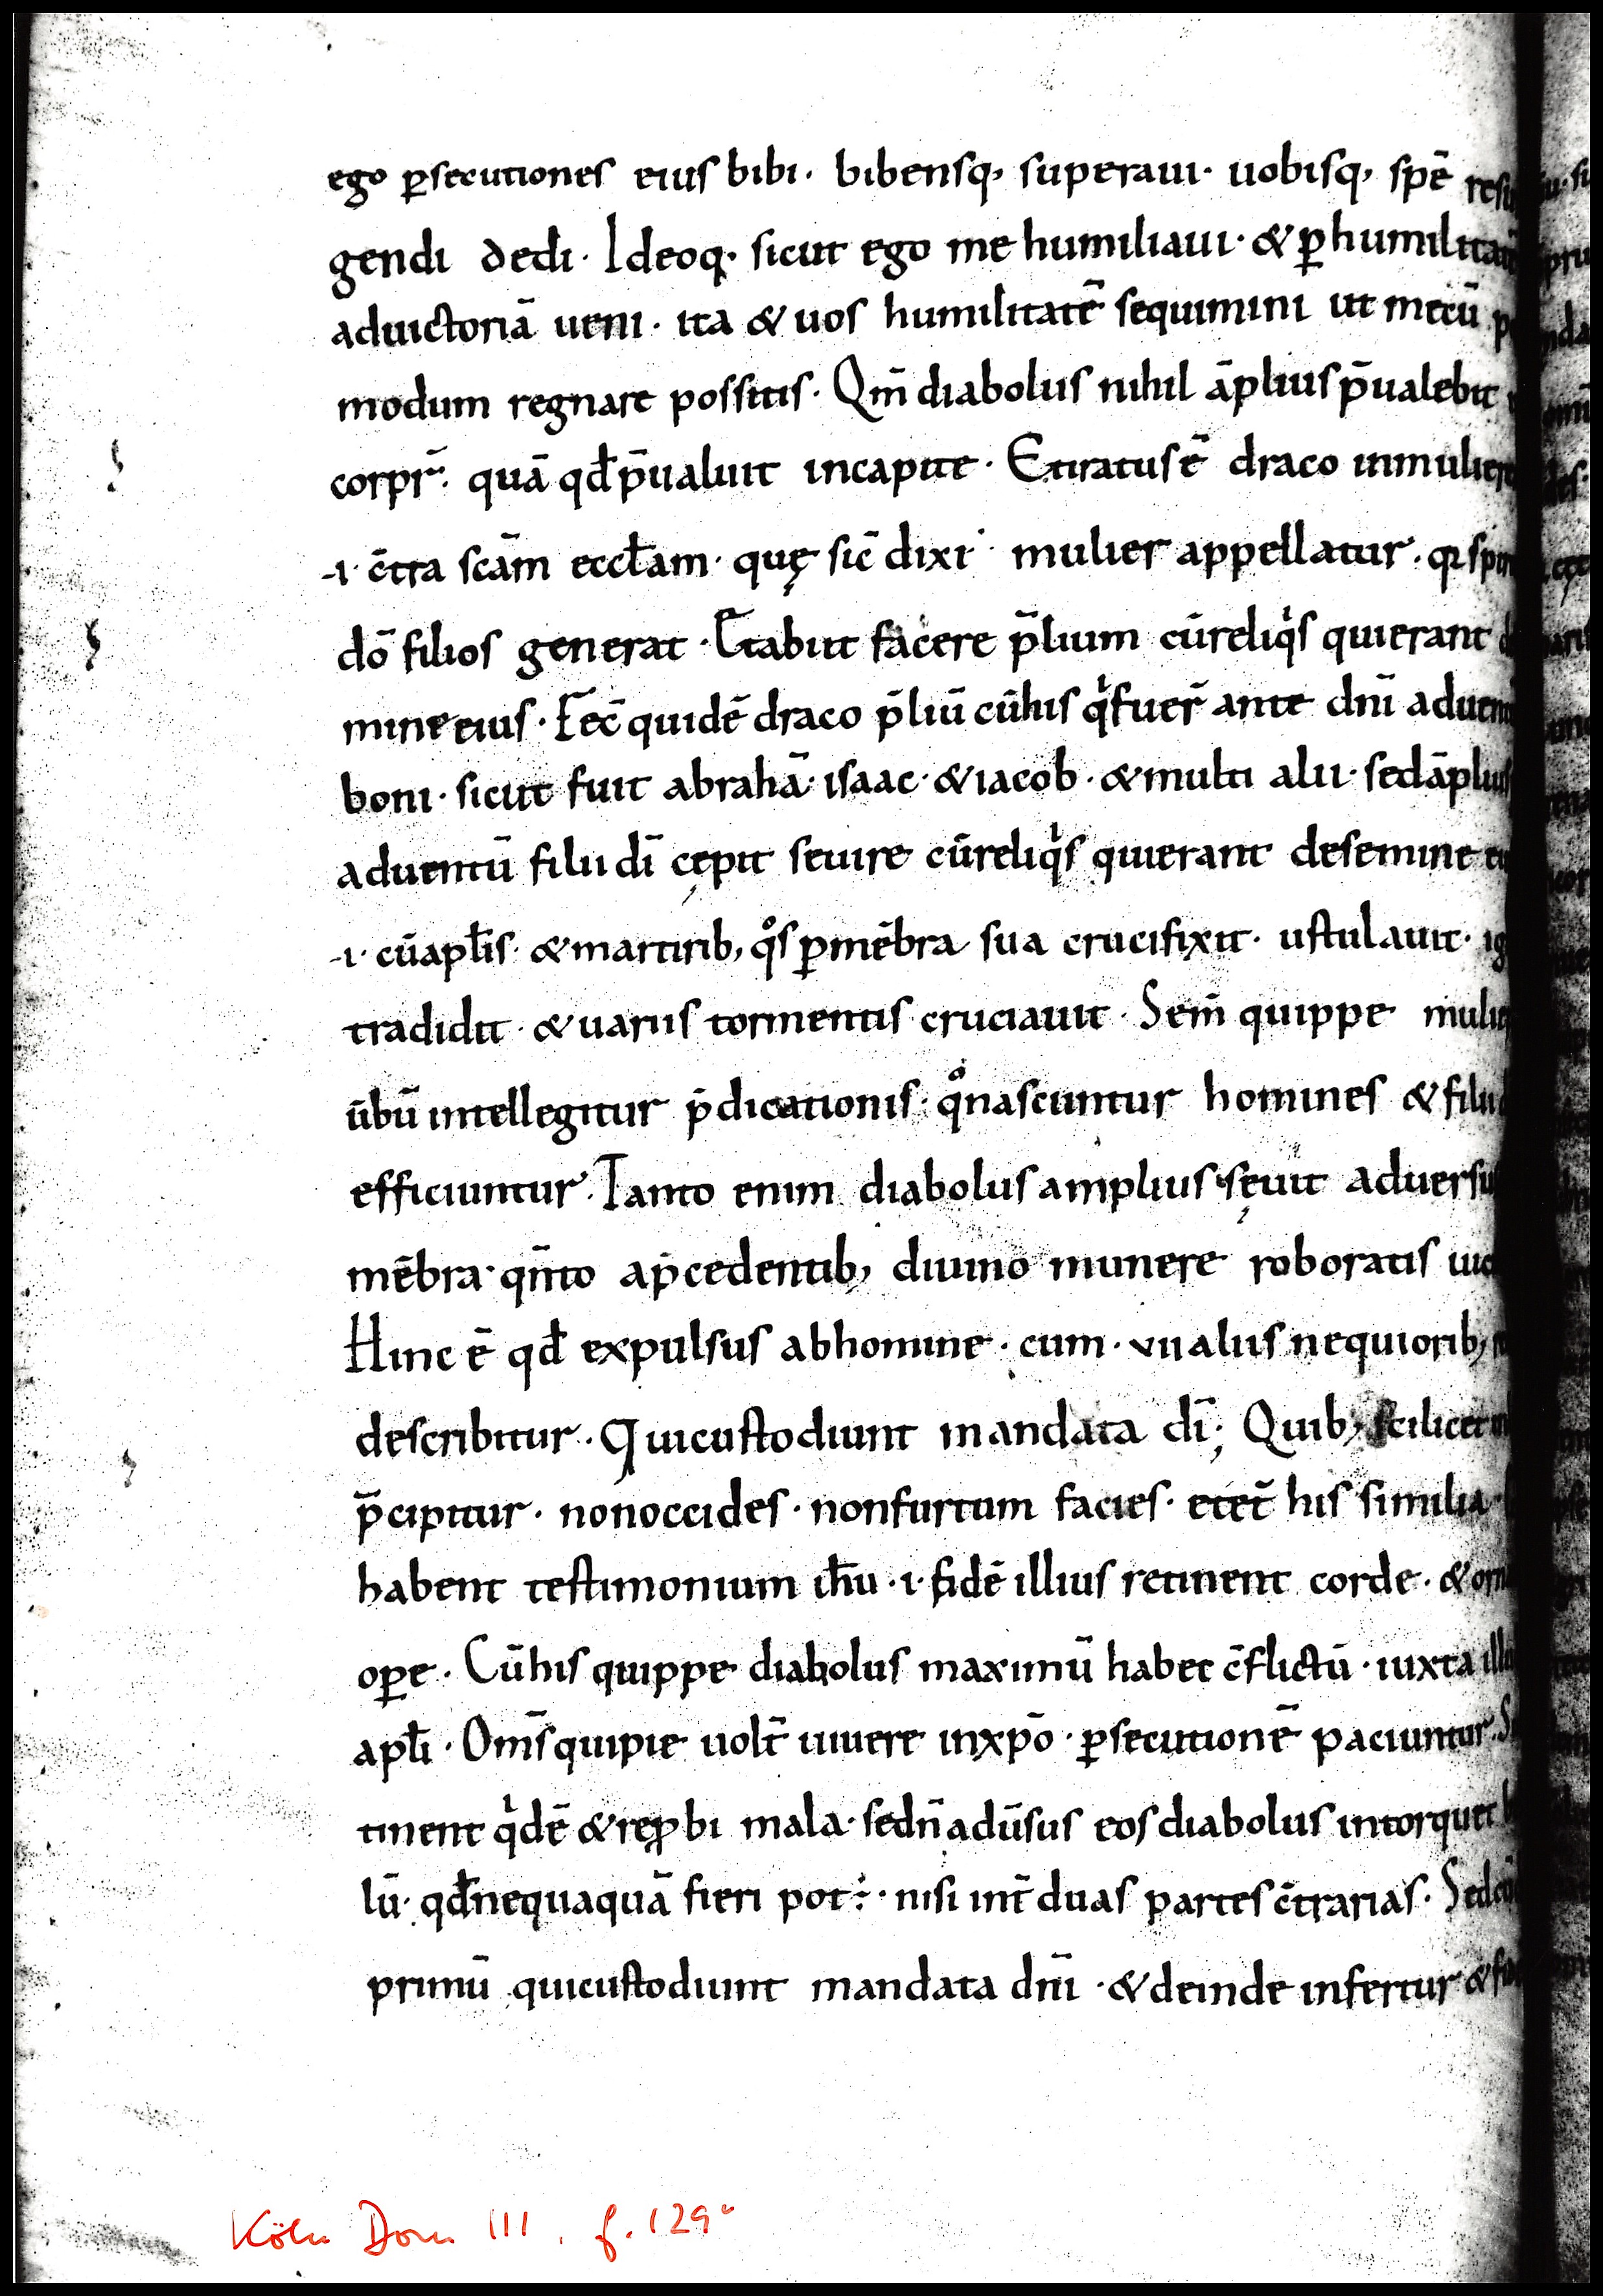 ego ꝑsecutiones eius bibi · bibensq, superaui · uobisq, spē
gendi dedi · Ideoq · sicut ego me humiliaui · & ꝑ humilitatē
aduictoriā ueni · ita & uos humilitatē sequimini ut mecū
modum regnare possitis · Qm̄ diabolus nihil āplius p̄ualebit
corpr̄ · quā qd̄ p̄ualuit incapite · Etiratus ē draco inmuliere
·i· c̄tra scām eccłam · quę sic̄ dixi · mulier appellatur · qꝛ
dō filios generat · Etabiit facere p̄lium cūreliqͥs quierant
mine eius · Fec̄ quidē draco p̄liū cūhis qͥ fuer̄ ante dn̄i
boni · sicut fuit abrahā · isaac · & iacob · & multi alii · sedāplius
aduentū filii dī cępit seuire cūreliqͥs quierant desemine
·i· cūapłis · & martirib, qͦs ꝑmēbra sua crucifixit · ustulauit ·
tradidit · & uariis tormentis cruciauit · Sem̄ quippe
ūbū intellegitur p̄dicationis · qͦ nascuntur homines & filii
efficiuntur · Tanto enim diabolus amplius sęuit aduersus
mēbra · qn̄to ap̄cedentib, diuino munere roboratis
Hinc ē qd̄ expulsus abhomine · cum · vii aliis nequiorib,
describitur · Quicustodiunt mandata dī; Quib, scilicet
p̄cipitur · nonoccides · nonfurtum facies · etcet̄ his similia ·
habent testimonium ih̄u · i · fidē illius retinent corde ·
oꝑe · Cūhis quippe diabolus maximū habet c̄flictū · iuxta
apłi · Om̄s quipie uolt̄ uiuere inxp̄o · ꝑsecutionē paciuntur ·
tinent qͥdē & reꝓbi mala · sedn̄ adūsus eos diabolus intorquet
lū · qd̄nequaquā fieri pot · nisi int̄ duas partes c̄trarias ·
primū quicustodiunt mandata dn̄i · & deinde infertur
Köln Dom 111. f. 129ᵛ